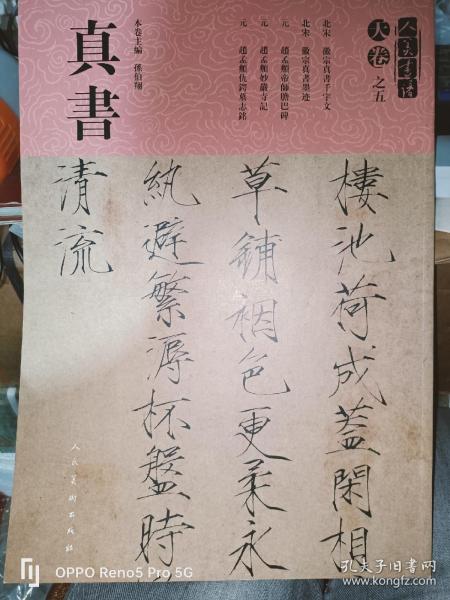 人美書譜
天卷 之五
北宋 徽宗真書千字文
北宋 徽宗真書墨迹
元 趙孟頫帝師膽巴碑
元 趙孟頫妙嚴寺記
元 趙孟頫仇鍔墓志銘
本卷主編 孫伯翔
真書
棲池荷成蓋閑相
草鋪裀色更柔永
紈避繁溽杯盤時
清流
人民美術出版社
OPPO Reno5 Pro 5G
孔夫子旧书网
www.kongfz.com